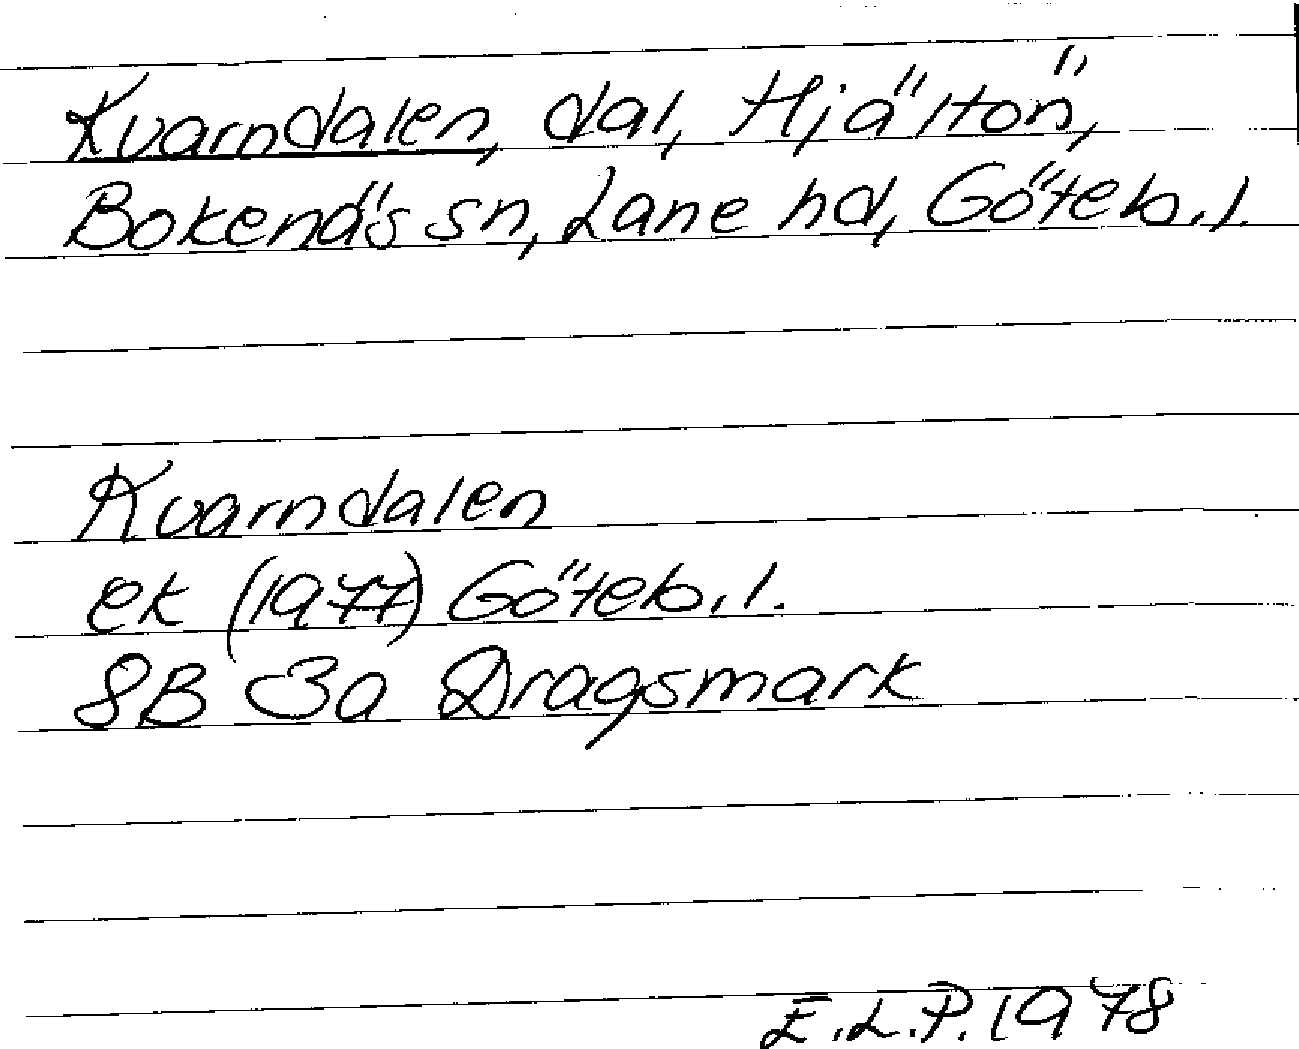 Kvarndalen, dal, Hjältön,
Bokenäs sn, Lane hd, Göteb.l.
Kvarndalen
ek (1977) Göteb.l.
8B 3a Dragsmark
E.L.P. 1978